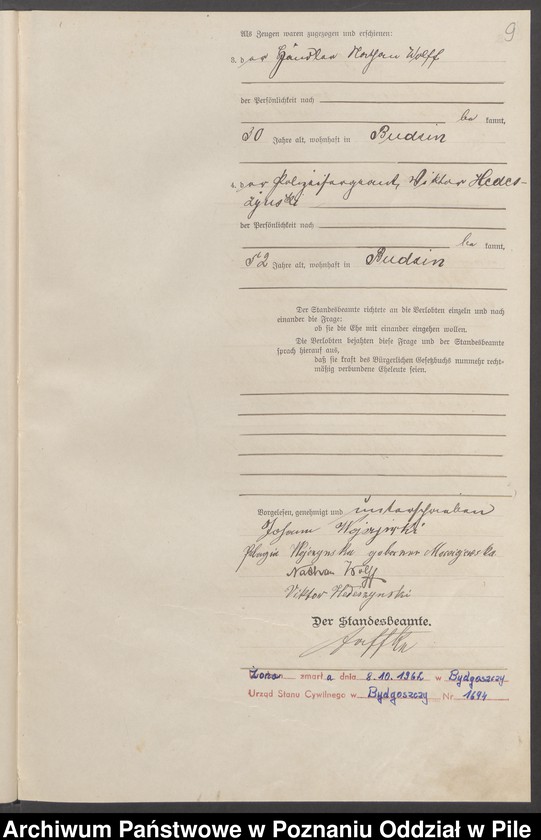 9
Als Zeugen waren zugezogen und erschienen:
3. der Händler Nathan Wolff
der Persönlichkeit nach
be kannt,
50 Jahre alt, wohnhaft in Budsin
4. der Polizeisergeant, Viktor Hedes-
zynski
der Persönlichkeit nach
be kannt,
52 Jahre alt, wohnhaft in Budsin
Der Standesbeamte richtete an die Verlobten einzeln und nach
einander die Frage:
ob sie die Ehe mit einander eingehen wollen.
Die Verlobten bejahten diese Frage und der Standesbeamte
sprach hierauf aus,
daß sie kraft des Bürgerlichen Gesetzbuchs nunmehr recht-
mäßig verbundene Eheleute seien.
Vorgelesen, genehmigt und unterschrieben
Johann
Pelagia geborene
Nathan Wolff
Viktor Hedeszynski
Der Standesbeamte.
Żona zmarła dnia 8.10.1962 w Bydgoszczy
Urząd Stanu Cywilnego w Bydgoszczy Nr 1694
Archiwum Państwowe w Poznaniu Oddział w Pile